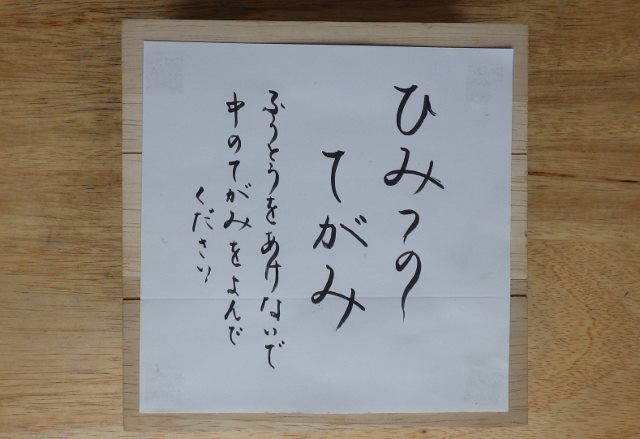 ひみつの
てがみ
ふうとうをあけないで
中のてがみをよんで
ください